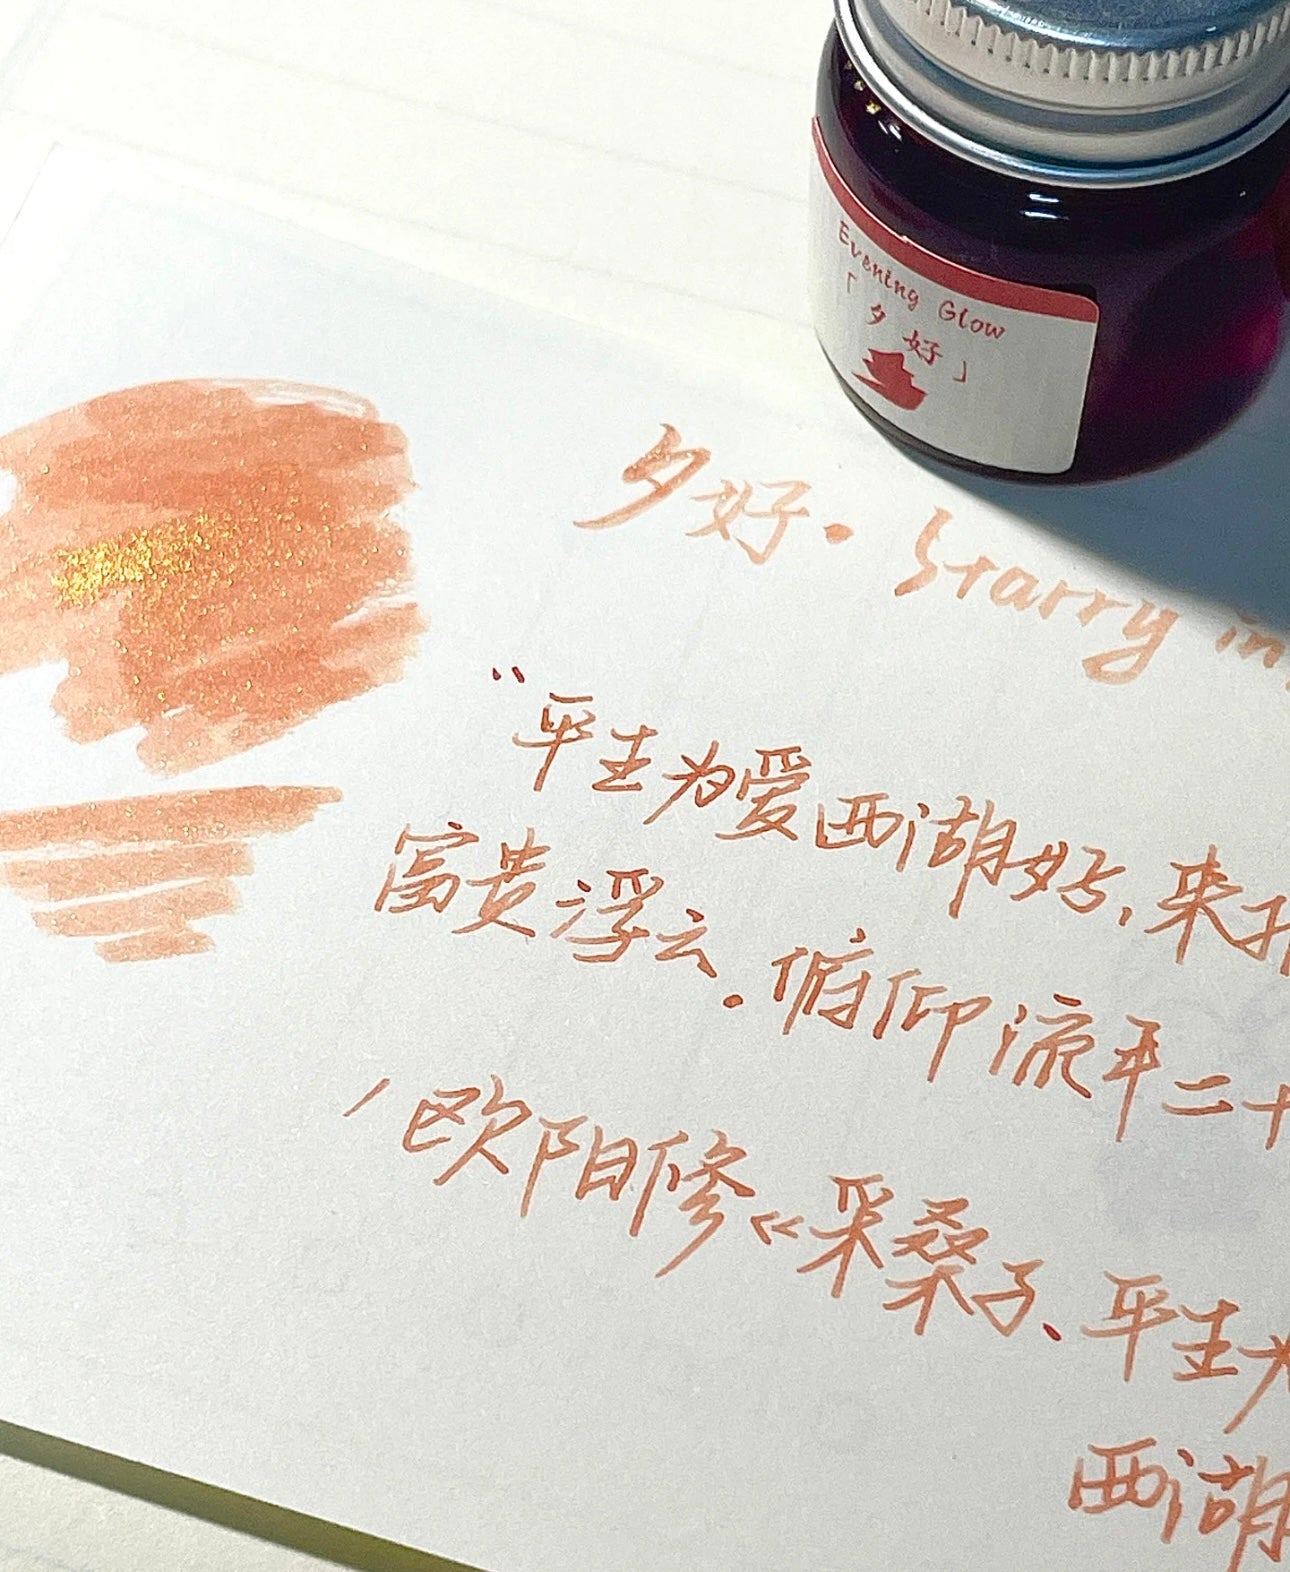 Evening Glow
「夕好」
夕好·Starry in
"平生为爱西湖好,来
富贵浮云.俯仰流年二十
/欧阳修《采桑子、平生为
西湖